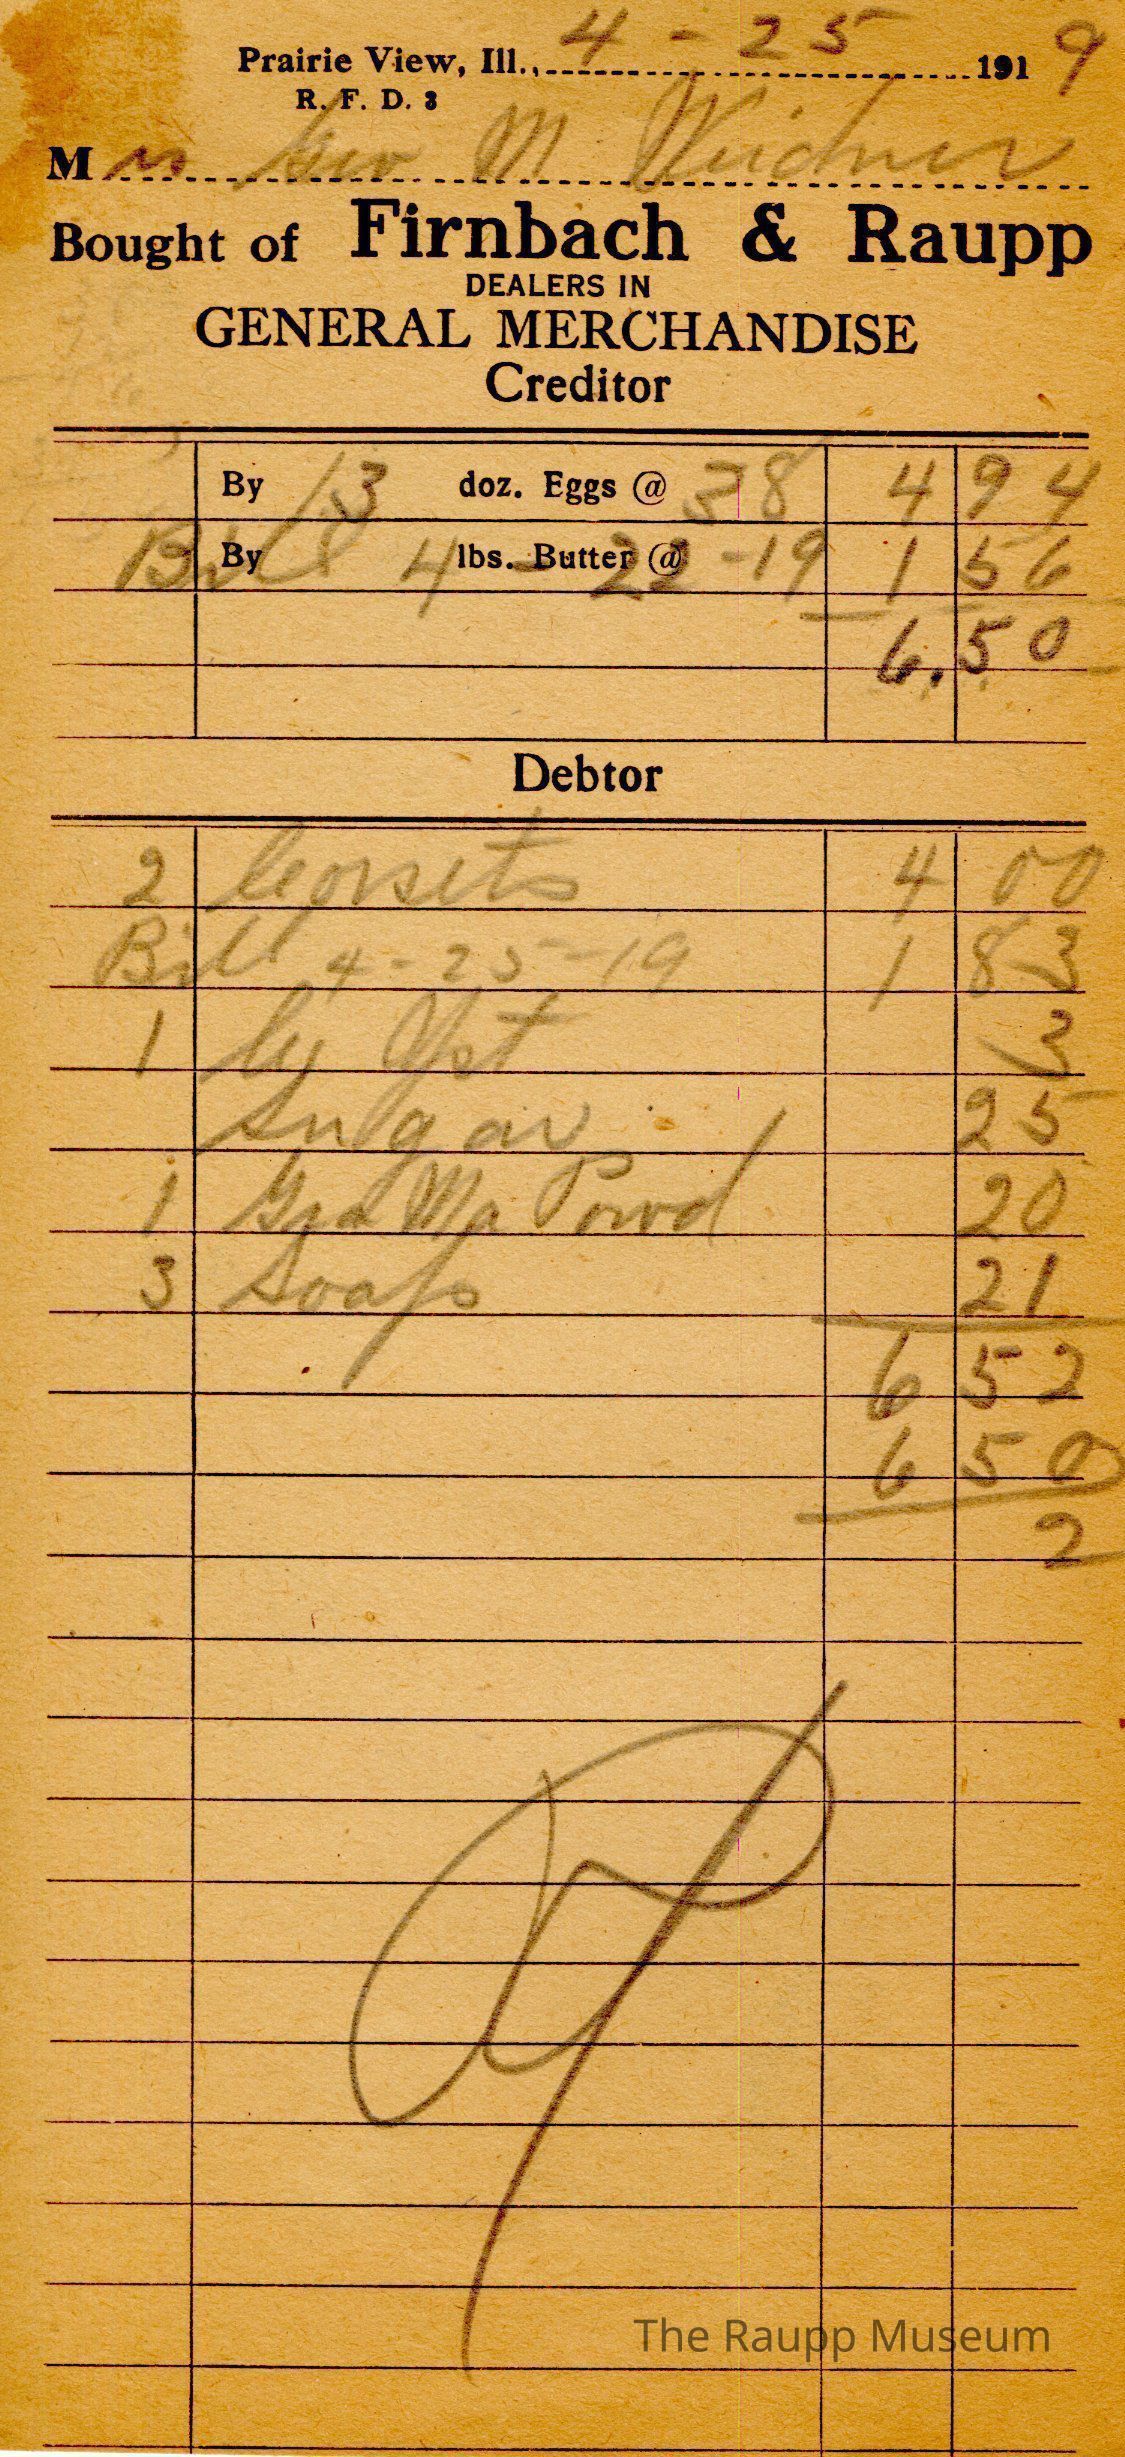 Prairie View, Ill., 4 - 25 1919
R. F. D. 3
Mrs Geo M Weidner
Bought of Firnbach & Raupp
DEALERS IN
GENERAL MERCHANDISE
Creditor
By 13 doz. Eggs @ 38 4 94
Bill By 4 - lbs. Butter @ 22 - 19 1 56
6.50
Debtor
2 Corsets 4 00
Bill 4 - 25 - 19 1 83
1 Yst 3
Sugar 25
1 Gra Ma Powd 20
3 Soaps 21
6 52
6 50
2
The Raupp Museum